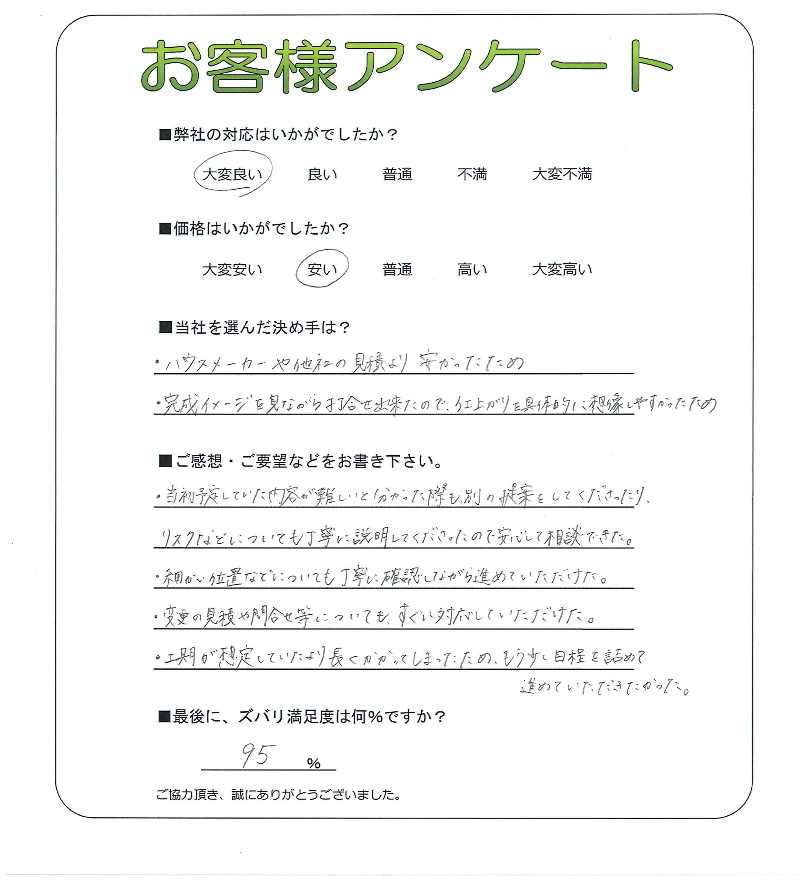 お客様アンケート
■弊社の対応はいかがでしたか？
大変良い 良い 普通 不満 大変不満
■価格はいかがでしたか？
大変安い 安い 普通 高い 大変高い
■当社を選んだ決め手は？
・ハウスメーカーや他社の見積より 安かったため
・完成イメージを見ながら打合せ出来たので、仕上がりを具体的に想像しやすかったため
■ご感想・ご要望などをお書き下さい。
・当初予定していた内容が難しいと分かった際も、別の提案をしてくださったり、
リスクなどについても丁寧に説明してくださったので安心して相談できた。
・細かい位置などについても丁寧に確認しながら進めていただけた。
・変更の見積や問合せ等についても、すぐに対応していただけた。
・工期が想定していたより長くかかってしまったため、もう少し日程を詰めて
進めていただきたかった。
■最後に、ズバリ満足度は何%ですか？
95 %
ご協力頂き、誠にありがとうございました。